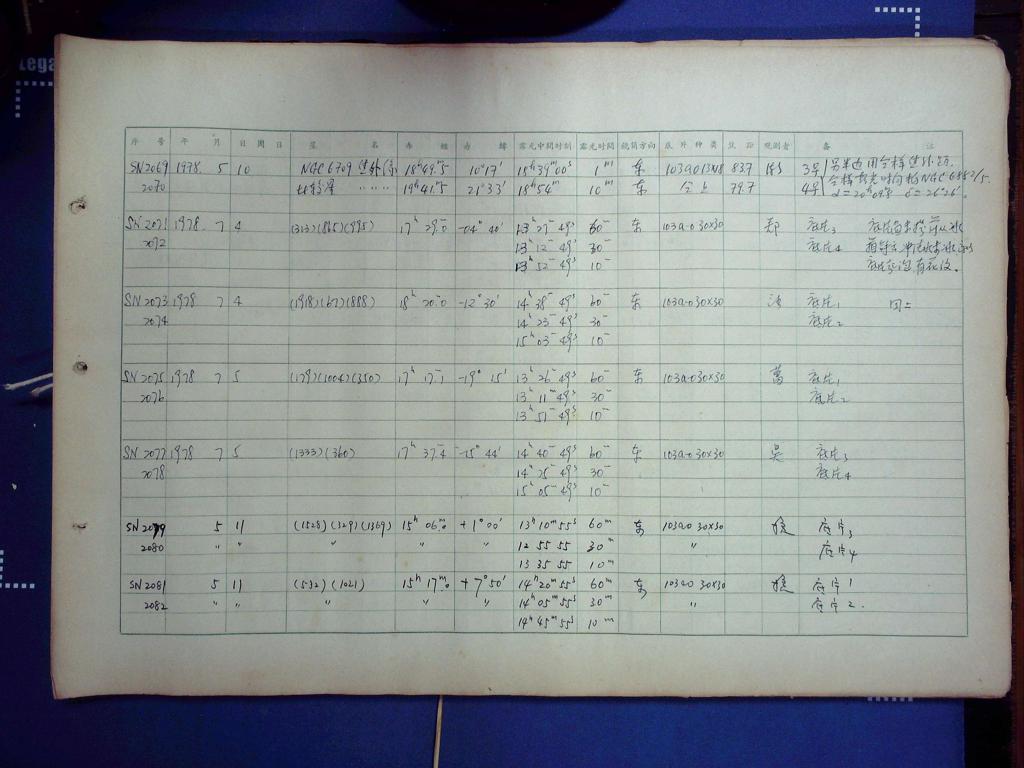 Lega
序 号 年 月 日 周 日 星 名 赤 經 赤 緯 露光中間时刻 露光时間 鏡筒方向 底片种类 焦距 观测者 备 注
SN2069 1978. 5 10 NGC 6709 18ʰ49.ᵐ5 10°17′ 18ʰ39ᵐ00ˢ 1ᵐ 东 103aO 13×18 83.7 3号
2070 19ʰ41.ᵐ5 21°33′ 18ʰ54ᵐ 10ᵐ 东 仝上 79.7 4号
SN2071 1978. 7 4 (313)(865)(995) 17ʰ 29.ᵐ0 -04° 40′ 13ʰ 27ᵐ 49ˢ 60ᵐ 东 103a-0 30×30 郑 底片3
2072 13ʰ 12ᵐ 49ˢ 30ᵐ 底片4
13ʰ 52ᵐ 49ˢ 10ᵐ
SN2073 1978 7 4 (1918)(67)(888) 18ʰ 20.ᵐ0 -12° 30′ 14ʰ 38ᵐ 49ˢ 60ᵐ 东 103a-0 30×30 底片1 同上
2074 14ʰ 23ᵐ 49ˢ 30ᵐ 底片2
15ʰ 03ᵐ 49ˢ 10ᵐ
SN2075 1978 7 5 (179)(1004)(350) 17ʰ 17.ᵐ1 -19° 15′ 13ʰ 26ᵐ 49ˢ 60ᵐ 东 103a-0 30×30 萬 底片1
2076 13ʰ 11ᵐ 49ˢ 30ᵐ 底片2
13ʰ 51ᵐ 49ˢ 10ᵐ
SN2077 1978 7 5 (1333)(360) 17ʰ 37.4 -15° 44′ 14ʰ 40ᵐ 49ˢ 60ᵐ 东 103a-0 30×30 吴 底片3
2078 14ʰ 25ᵐ 49ˢ 30ᵐ 底片4
15ʰ 05ᵐ 49ˢ 10ᵐ
SN2079 5 11 (1528)(329)(1369) 15ʰ 06.ᵐ0 +1° 00′ 13ʰ 10ᵐ 55ˢ 60ᵐ 东 103aO 30×30 底片3
2080 〃 〃 〃 〃 〃 12 55 55 30ᵐ 〃 底片4
13 35 55 10ᵐ
SN2081 5 11 (532)(1021) 15ʰ 17.ᵐ0 +7° 50′ 14ʰ 20ᵐ 55ˢ 60ᵐ 东 103aO 30×30 底片1
2082 〃 〃 〃 〃 〃 14ʰ 05ᵐ 55ˢ 30ᵐ 〃 底片2.
14ʰ 45ᵐ 55ˢ 10ᵐ